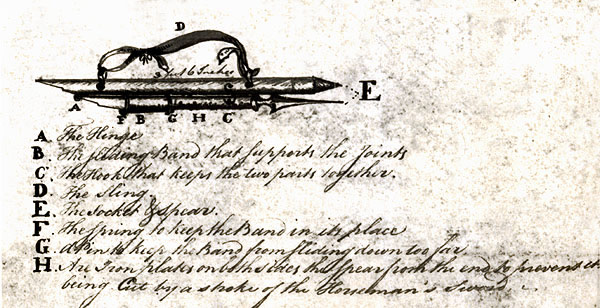 D
3 feet 6 Inches
E
A
F B G H C
A. The Hinge
B. The sliding Band that supports the Joints
C. The Hook that keeps the two parts together.
D. The Sling.
E. The Socket & Spear.
F. The Spring to keep the Band in its place
G. A Pin to keep the Band from sliding down too far
H. Are Iron plates on both sides the Spear from the end to prevent its
being Cut by a stroke of the Horseman's Sword